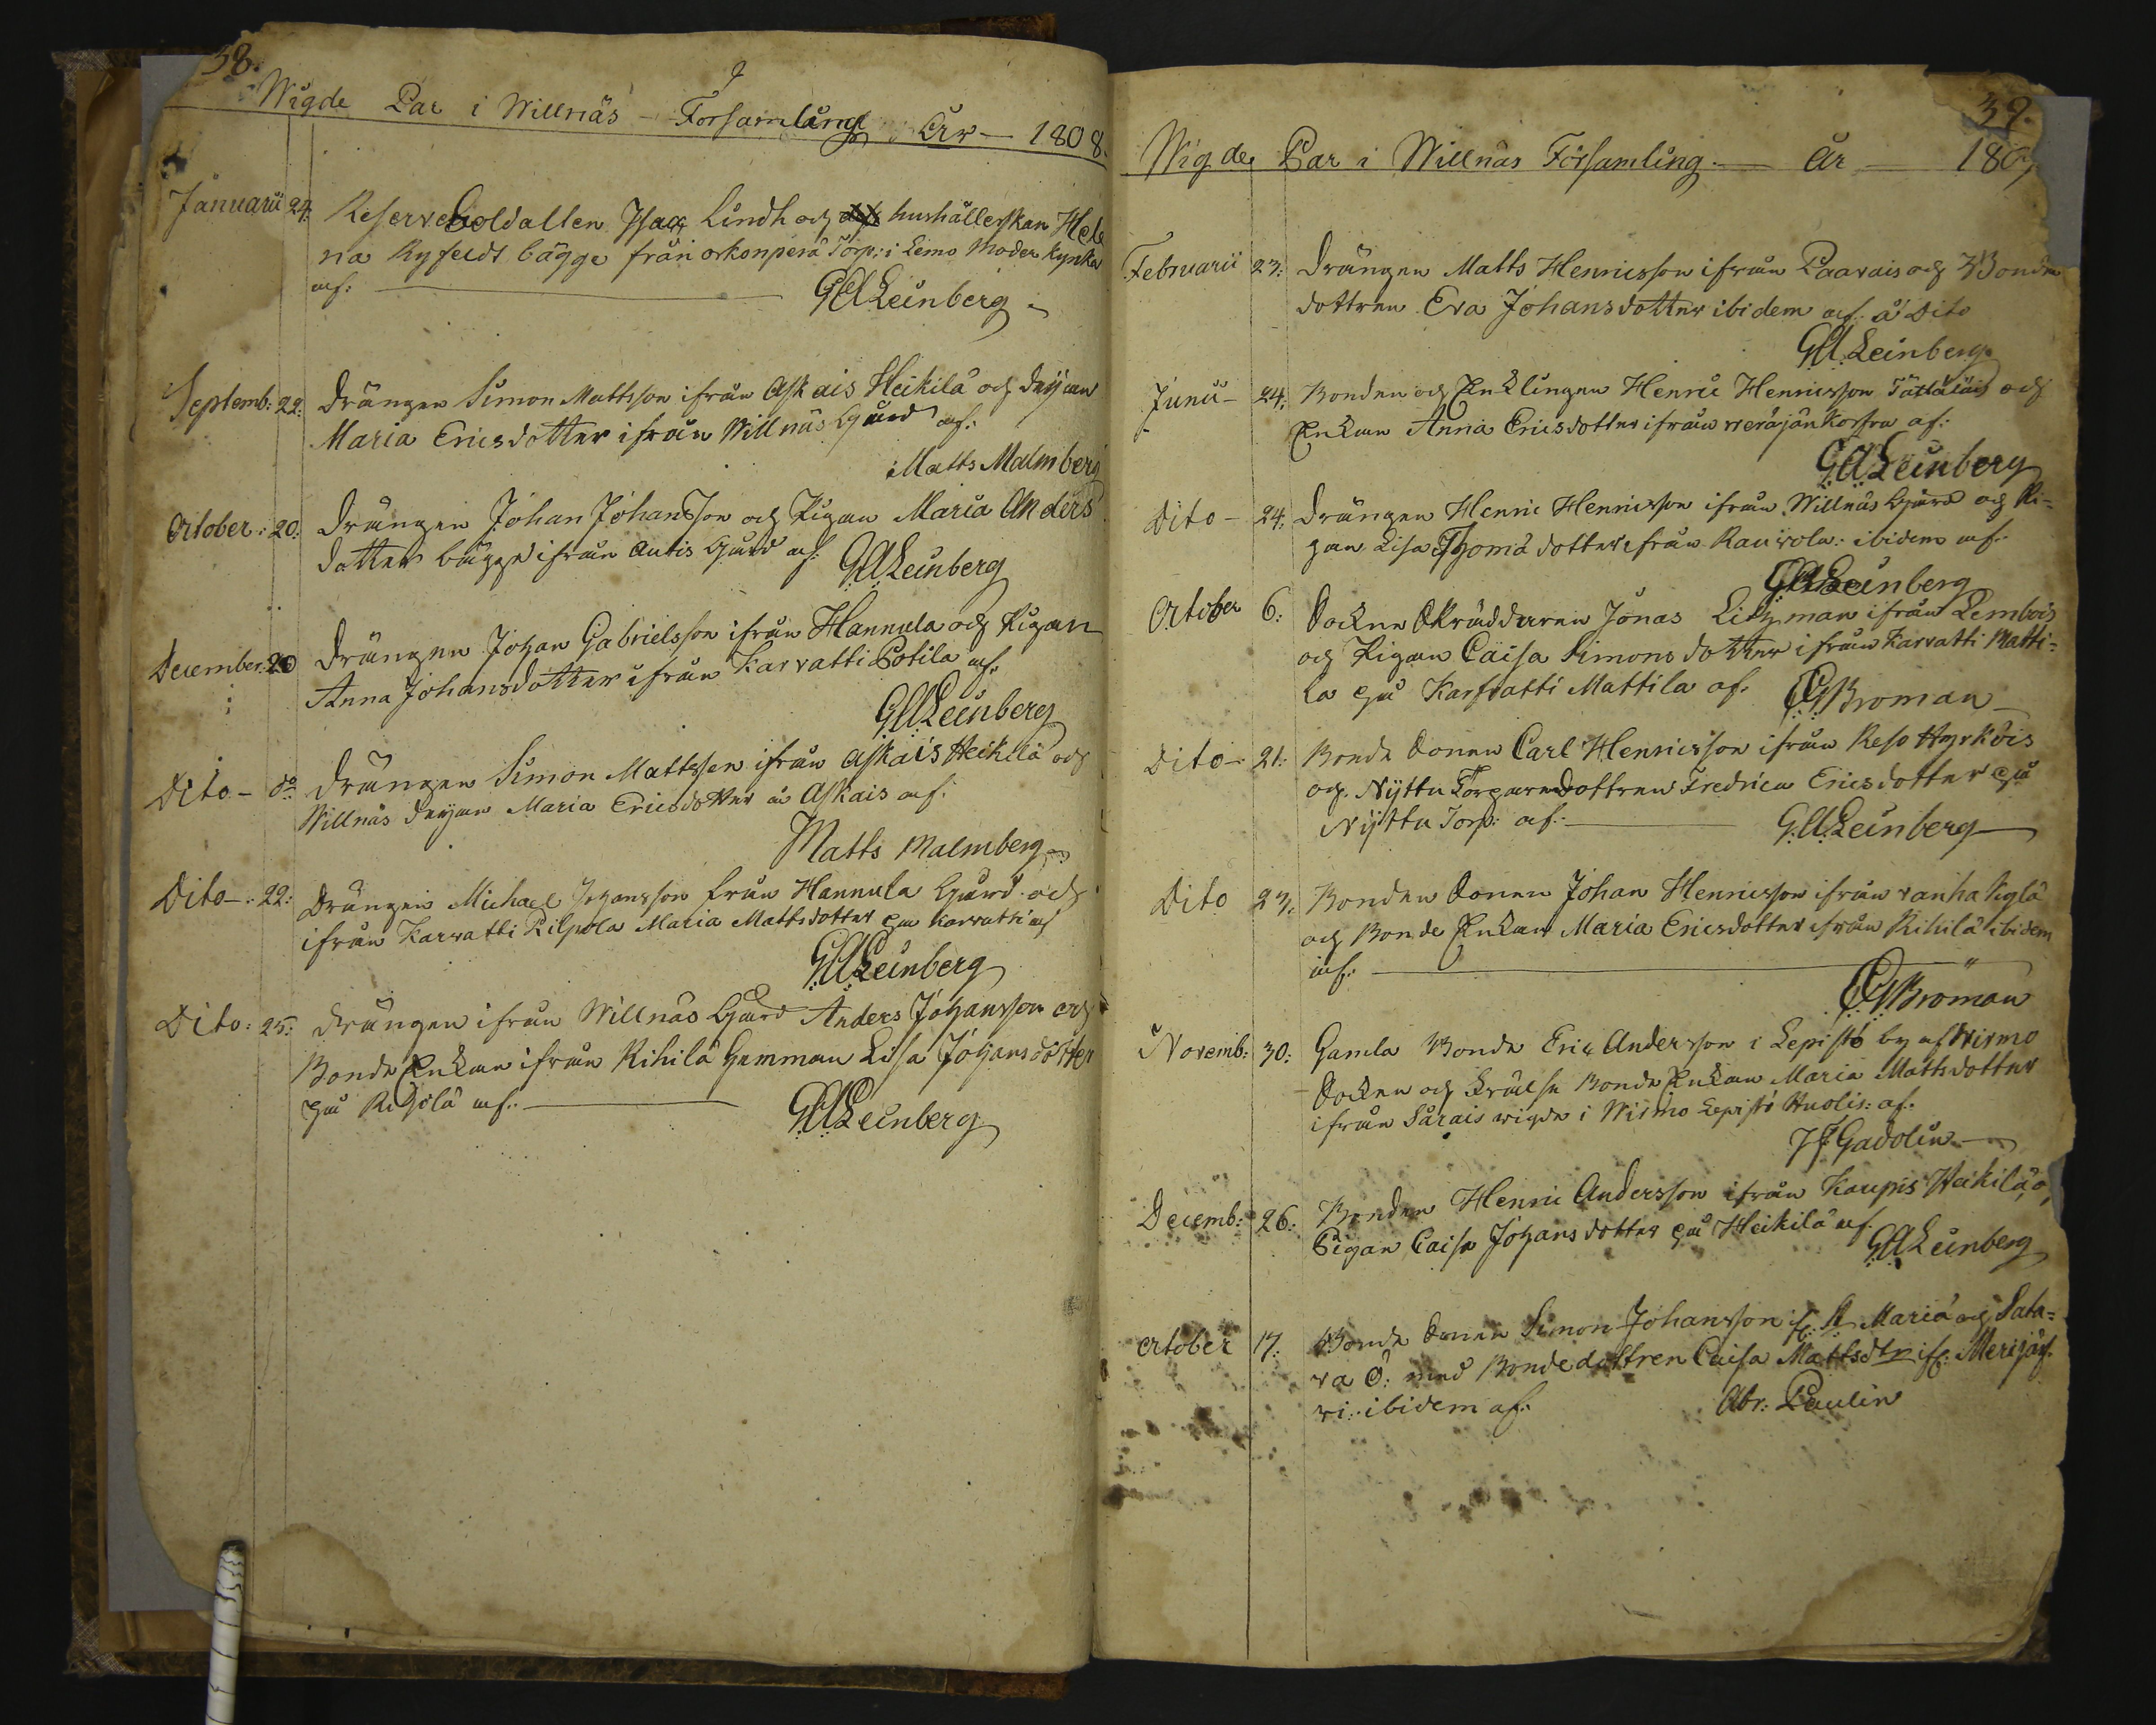 38.
Wigde Par i Willnäs Församling År 1808.
Januarii 24. Reserve Soldatten Isac Lindh och hushållerskan Hele
na Ryfeldt bägge från orkonperä Torp: i Lemo Moder kyrka
af: GALeinberg
Septemb: 22: Drängen Simon Mattsson ifrån Askais Heikilä och Deijan
Maria Ericsdotter ifrån Willnäs Gård af:
Matts Malmberg
October: 20: Drängen Johan Johansson och Pigan Maria Anders
dotter bägge ifrån Autis Gård af: GALeinberg
December: 20 Drängen Johan Gabrielsson ifrån Hannula och Pigan
Anna Johansdotter ifrån Karvatti Potila af.
GALeinberg
Dito - do Drängen Simon Mattsson ifrån Askais Heikilä och
Willnäs Deijan Maria Ericsdotter å Askais af.
Matts Malmberg
Dito -: 22: Drängen Michael Johansson från Hannula Gård och
ifrån Karvatti Pilpola Maria Mattsdotter på Karvatti af
GALeinberg
Dito: 25: Drängen ifrån Willnäs Gård Anders Johansson och
Bonde Enkan ifrån Rihilä Hemman Lisa Johansdotter
på Rihilä af: GALeinberg
39.
Wigde Par i Willnäs Församling År 1809
Februarii 23: Drängen Matts Henricsson ifrån Paavais och Bonde
dottren Eva Johansdotter ibidem af. å Dito
GALeinberg
Junii - 24: Bonden och Enklingen Henric Henricsson och
Enkan Anna Ericsdotter ifrån af:
GALeinberg
Dito - 24: Drängen Henric Henricsson ifrån Willnäs Gård och Pi=
gan Lisa Thomä dotter ifrån Rauvola: ibidem af.
GALeinberg
October 6: Sockne Skräddaren Jonas ifrån Lembois
och Pigan Caisa Simons dotter ifrån Karvatti Matti=
la på Karvatti Mattila af. Broman
Dito - 21: Bonde Sonen Carl Henricsson ifrån Reso Hyrköis
och Nyttu Torparedottren Fredrica Ericsdotter på
Nyttu Torp: af: G.A.Leinberg
Dito 23: Bonden Sonen Johan Henricsson ifrån vanha kylä
och Bonde Enkan Maria Ericsdotter ifrån Rihilä ibidem
af: Broman
Novemb: 30: Gamla Bonde Eric Andersson i Lepistö by af Virmo
Socken och frälse Bonde Enkan Maria Mattsdotter
ifrån Särais vigde i Wirmo Lepistö Huolis: af.
Gadolin
Decemb: 26: Bonden Henric Andersson ifrån Kaupis Heikilä, o,
Pigan Caisa Johansdotter på Heikilä af.
GALeinberg
October 17: Bonde Sonen Simon Johansson if: St Mariä och Sata=
va Ö: med Bondedottren Caisa Mattsdtr if: Merijär=
vi: ibidem af: Abr: Paulin